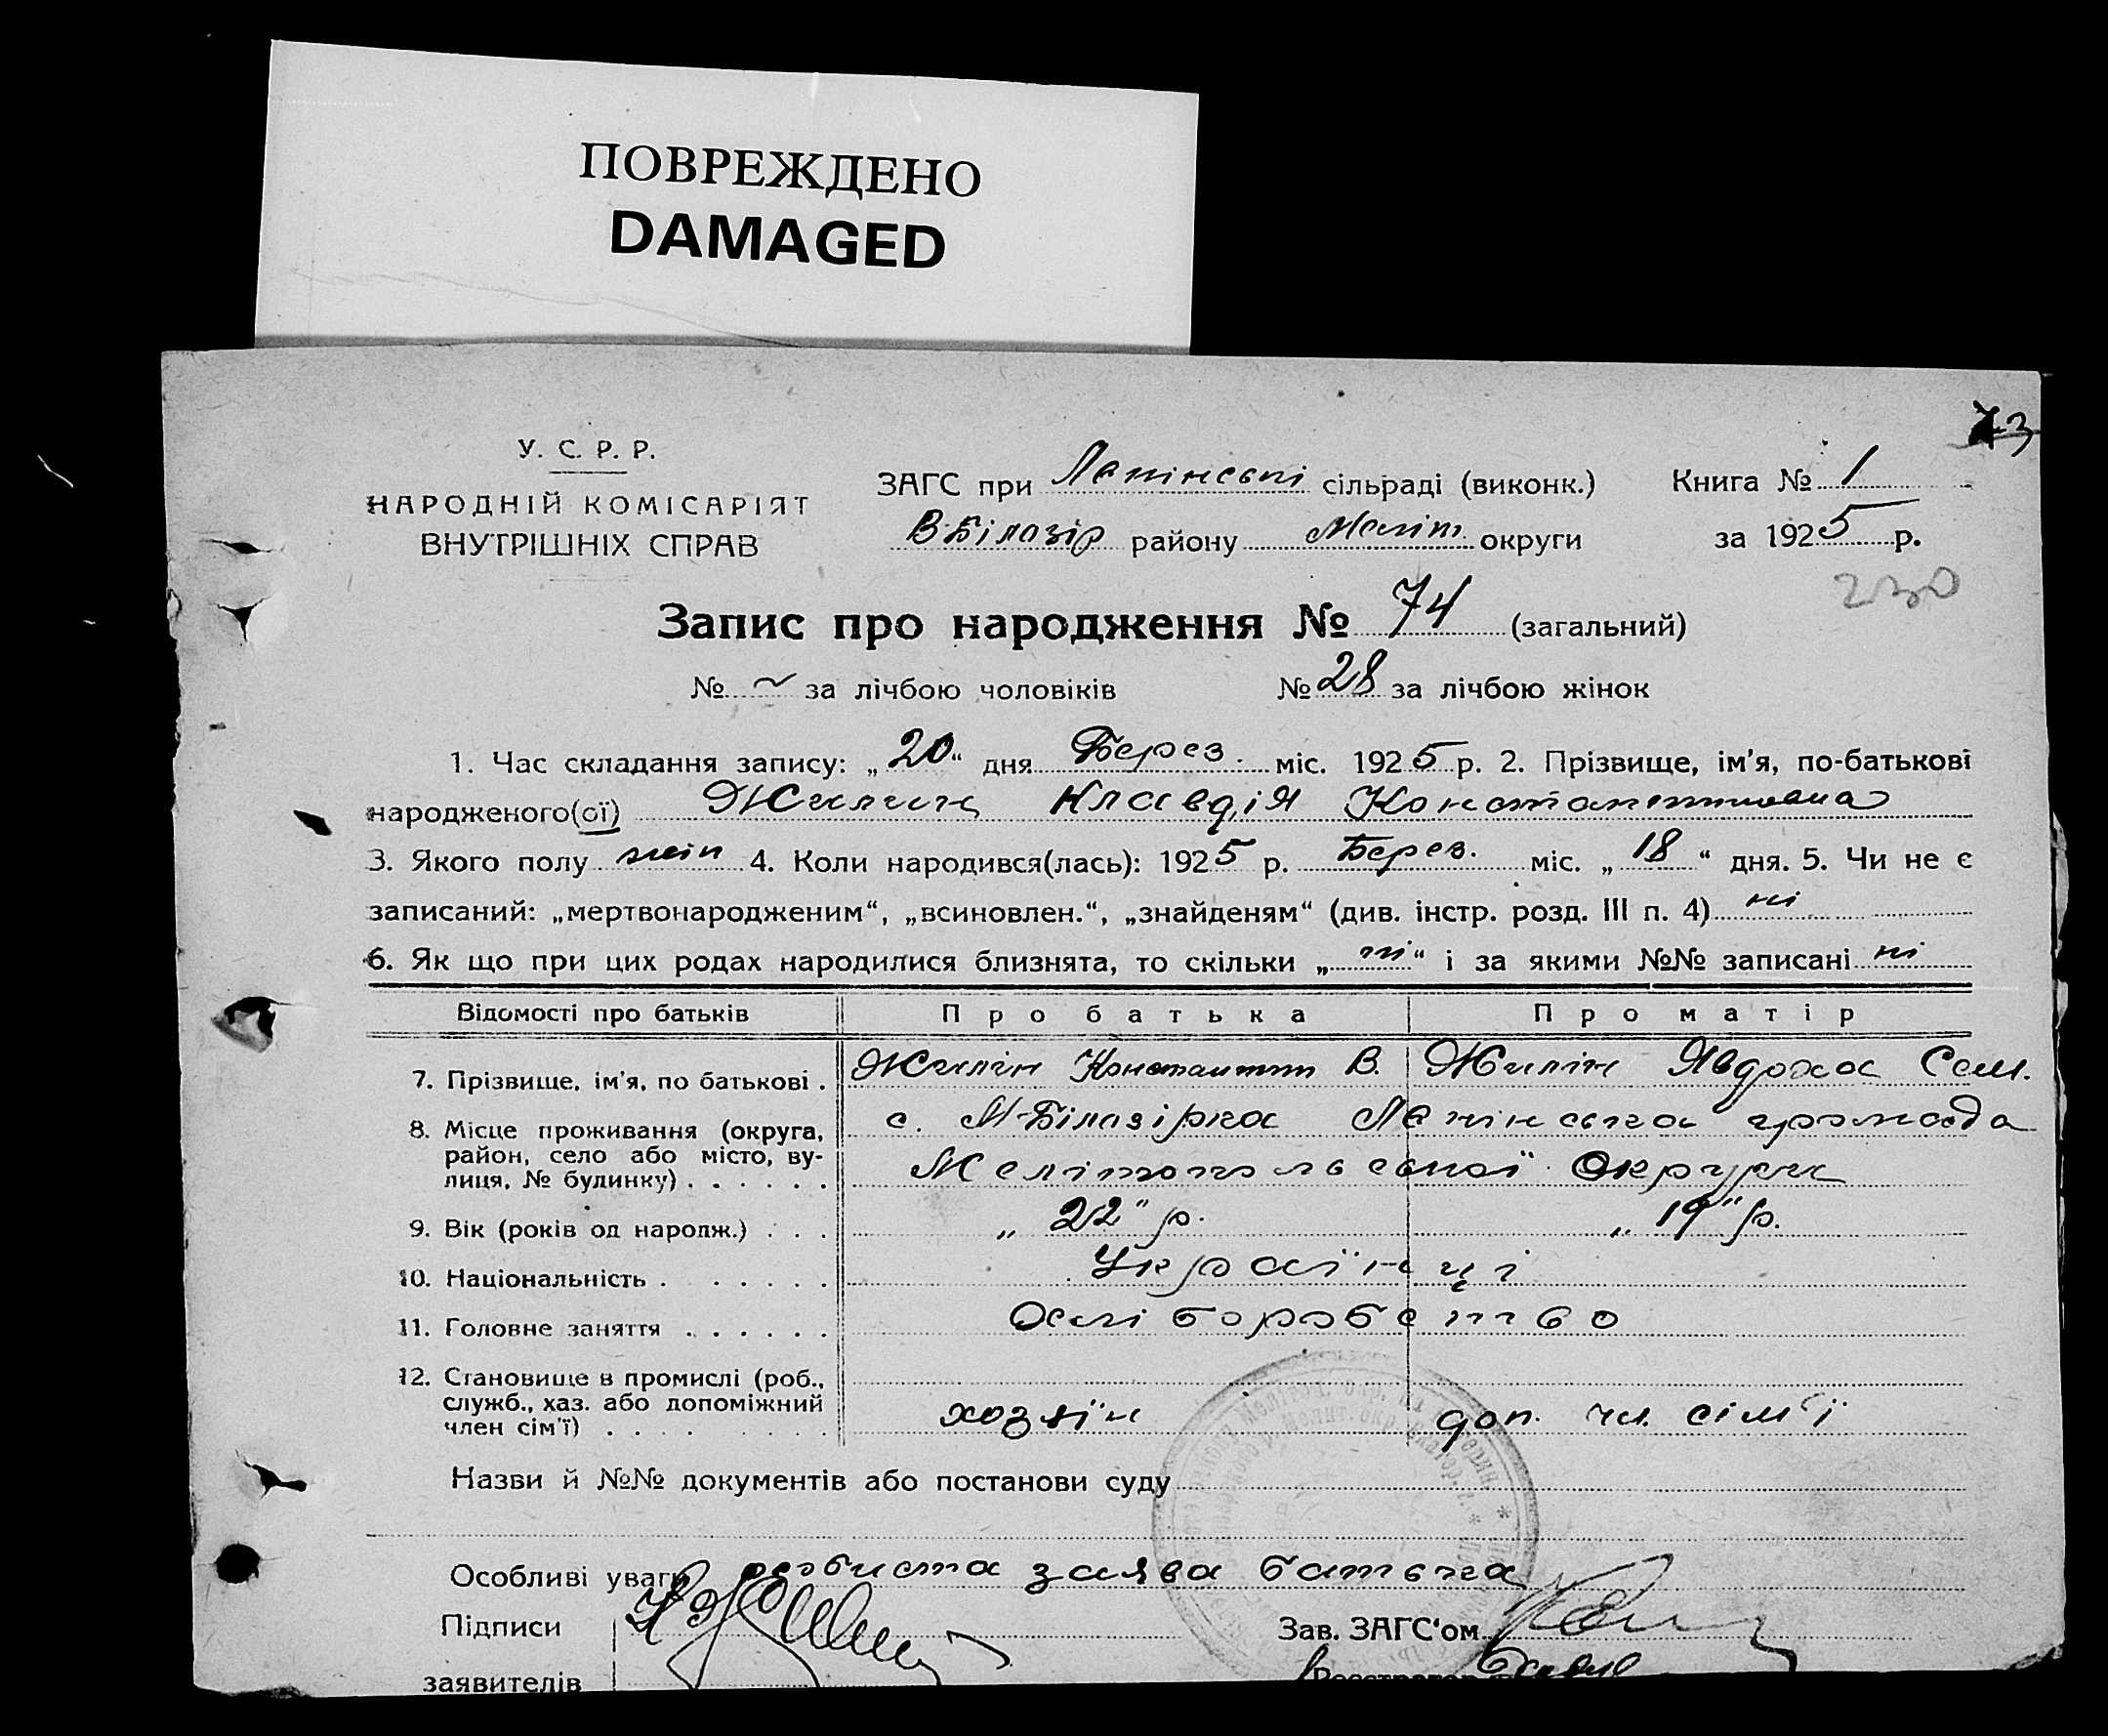 ПОВРЕЖДЕНО
DAMAGED
73
У. С. Р. Р.
НАРОДНІЙ КОМІСАРІЯТ
ВНУТРІШНІХ СПРАВ
ЗАГС при Ленінські сільраді (виконк.) Книга № 1
В-Білазір району Меліт. округи за 1925 р.
230
Запис про народження № 74 (загальний)
№ ~ за лічбою чоловіків № 28 за лічбою жінок
1. Час складання запису: „20“ дня Берез. міс. 1925 р. 2. Прізвище, ім'я, по-батькові
народженого(ої) Жилин Клавдія Константиновна
3. Якого полу жін 4. Коли народився(лась): 1925 р. Берез. міс. „18“ дня. 5. Чи не є
записаний: „мертвонародженим“, „всиновлен.“, „знайденям“ (див. інстр. розд. III п. 4) ні
6. Як що при цих родах народилися близнята, то скільки „ні“ і за якими №№ записані ні
Відомості про батьків Про батька Про матір
7. Прізвище, ім'я, по батькові . Жилін Константин В. Жилін Явдоха Сем.
8. Місце проживання (округа, район, село або місто, вулиця, № будинку) . . . . . . с. М-Білазірка Ленінська громада
Мелітопольської Округи
9. Вік (років од народж.) . . . „22“ р. „19“ р.
10. Національність . . . . . . Українці
11. Головне заняття . . . . . . боробство
12. Становище в промислі (роб., служб., хаз. або допоміжний член сім'ї) . . . . хозяїн доп. чл. сім'ї
Назви й №№ документів або постанови суду
Особливі уваги особиста заява батька
Підписи Зав. ЗАГС'ом
заявителів